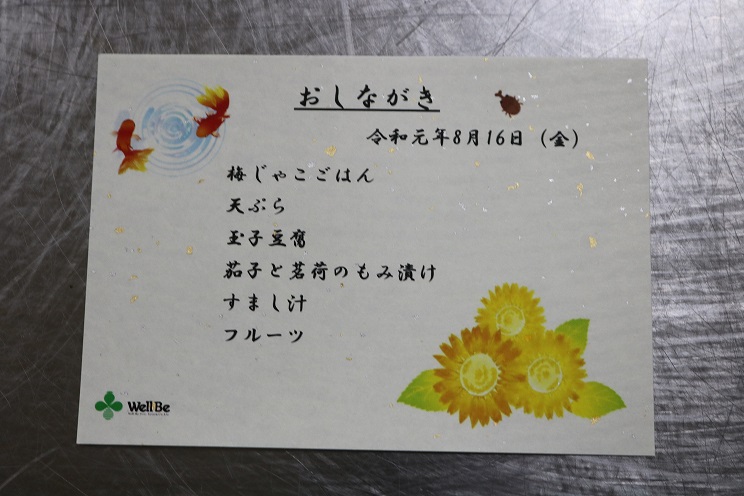 おしながき
令和元年8月16日（金）
梅じゃこごはん
天ぷら
玉子豆腐
茄子と茗荷のもみ漬け
すまし汁
フルーツ
WellBe